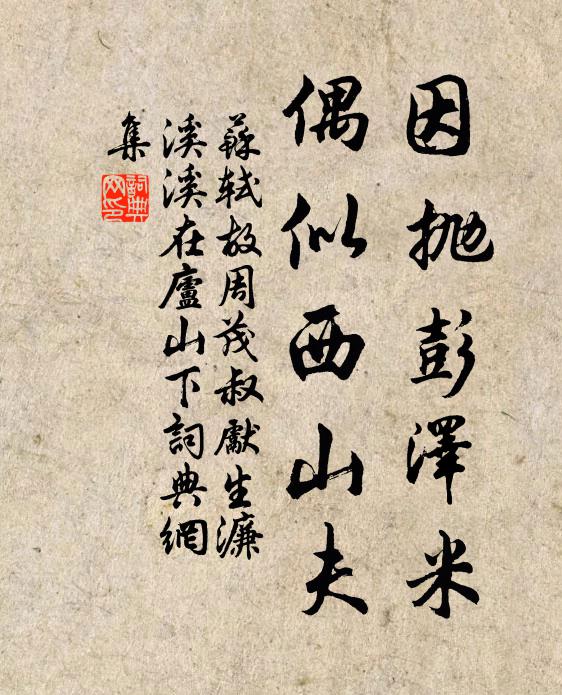 因抛彭澤米
偶似西山夫
蘇軾故周茂叔獻生濂
溪溪在廬山下詞典網
集
詞典
网印